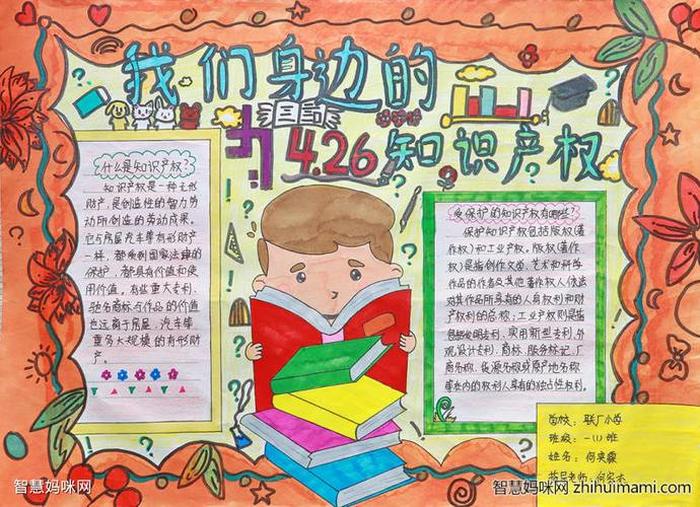 我们身边的
4.26知识产权
什么是知识产权?
知识产权是一种无形
财产,是创造性的智力劳
动所创造的劳动成果。
它与房屋汽车等有形财产
一样,都受到国家法律的
保护,都具有价值和使
用价值,有些重大专利、
驰名商标与作品的价值
也远高于房屋、汽车等
重多大规模的有形财
产。
受保护的知识产权有哪些?
保护知识产权包括版权(著
作权)和工业产权。版权(著作
权)是指创作文学、艺术和科学
作品的作者及其他著作权人依法
对其作品所享有的人身权利和财
产权利的总称;工业产权则是指
发明专利、实用新型专利、外
观设计专利、商标、服务标记、厂
商名称、货源名称或原产地名称
等在内的权利人享有的独占性权利。
学校:联厂小学
班级:一(1)班
姓名:何奕
指导老师:何
智慧妈咪网
智慧妈咪网 zhihuimami.com